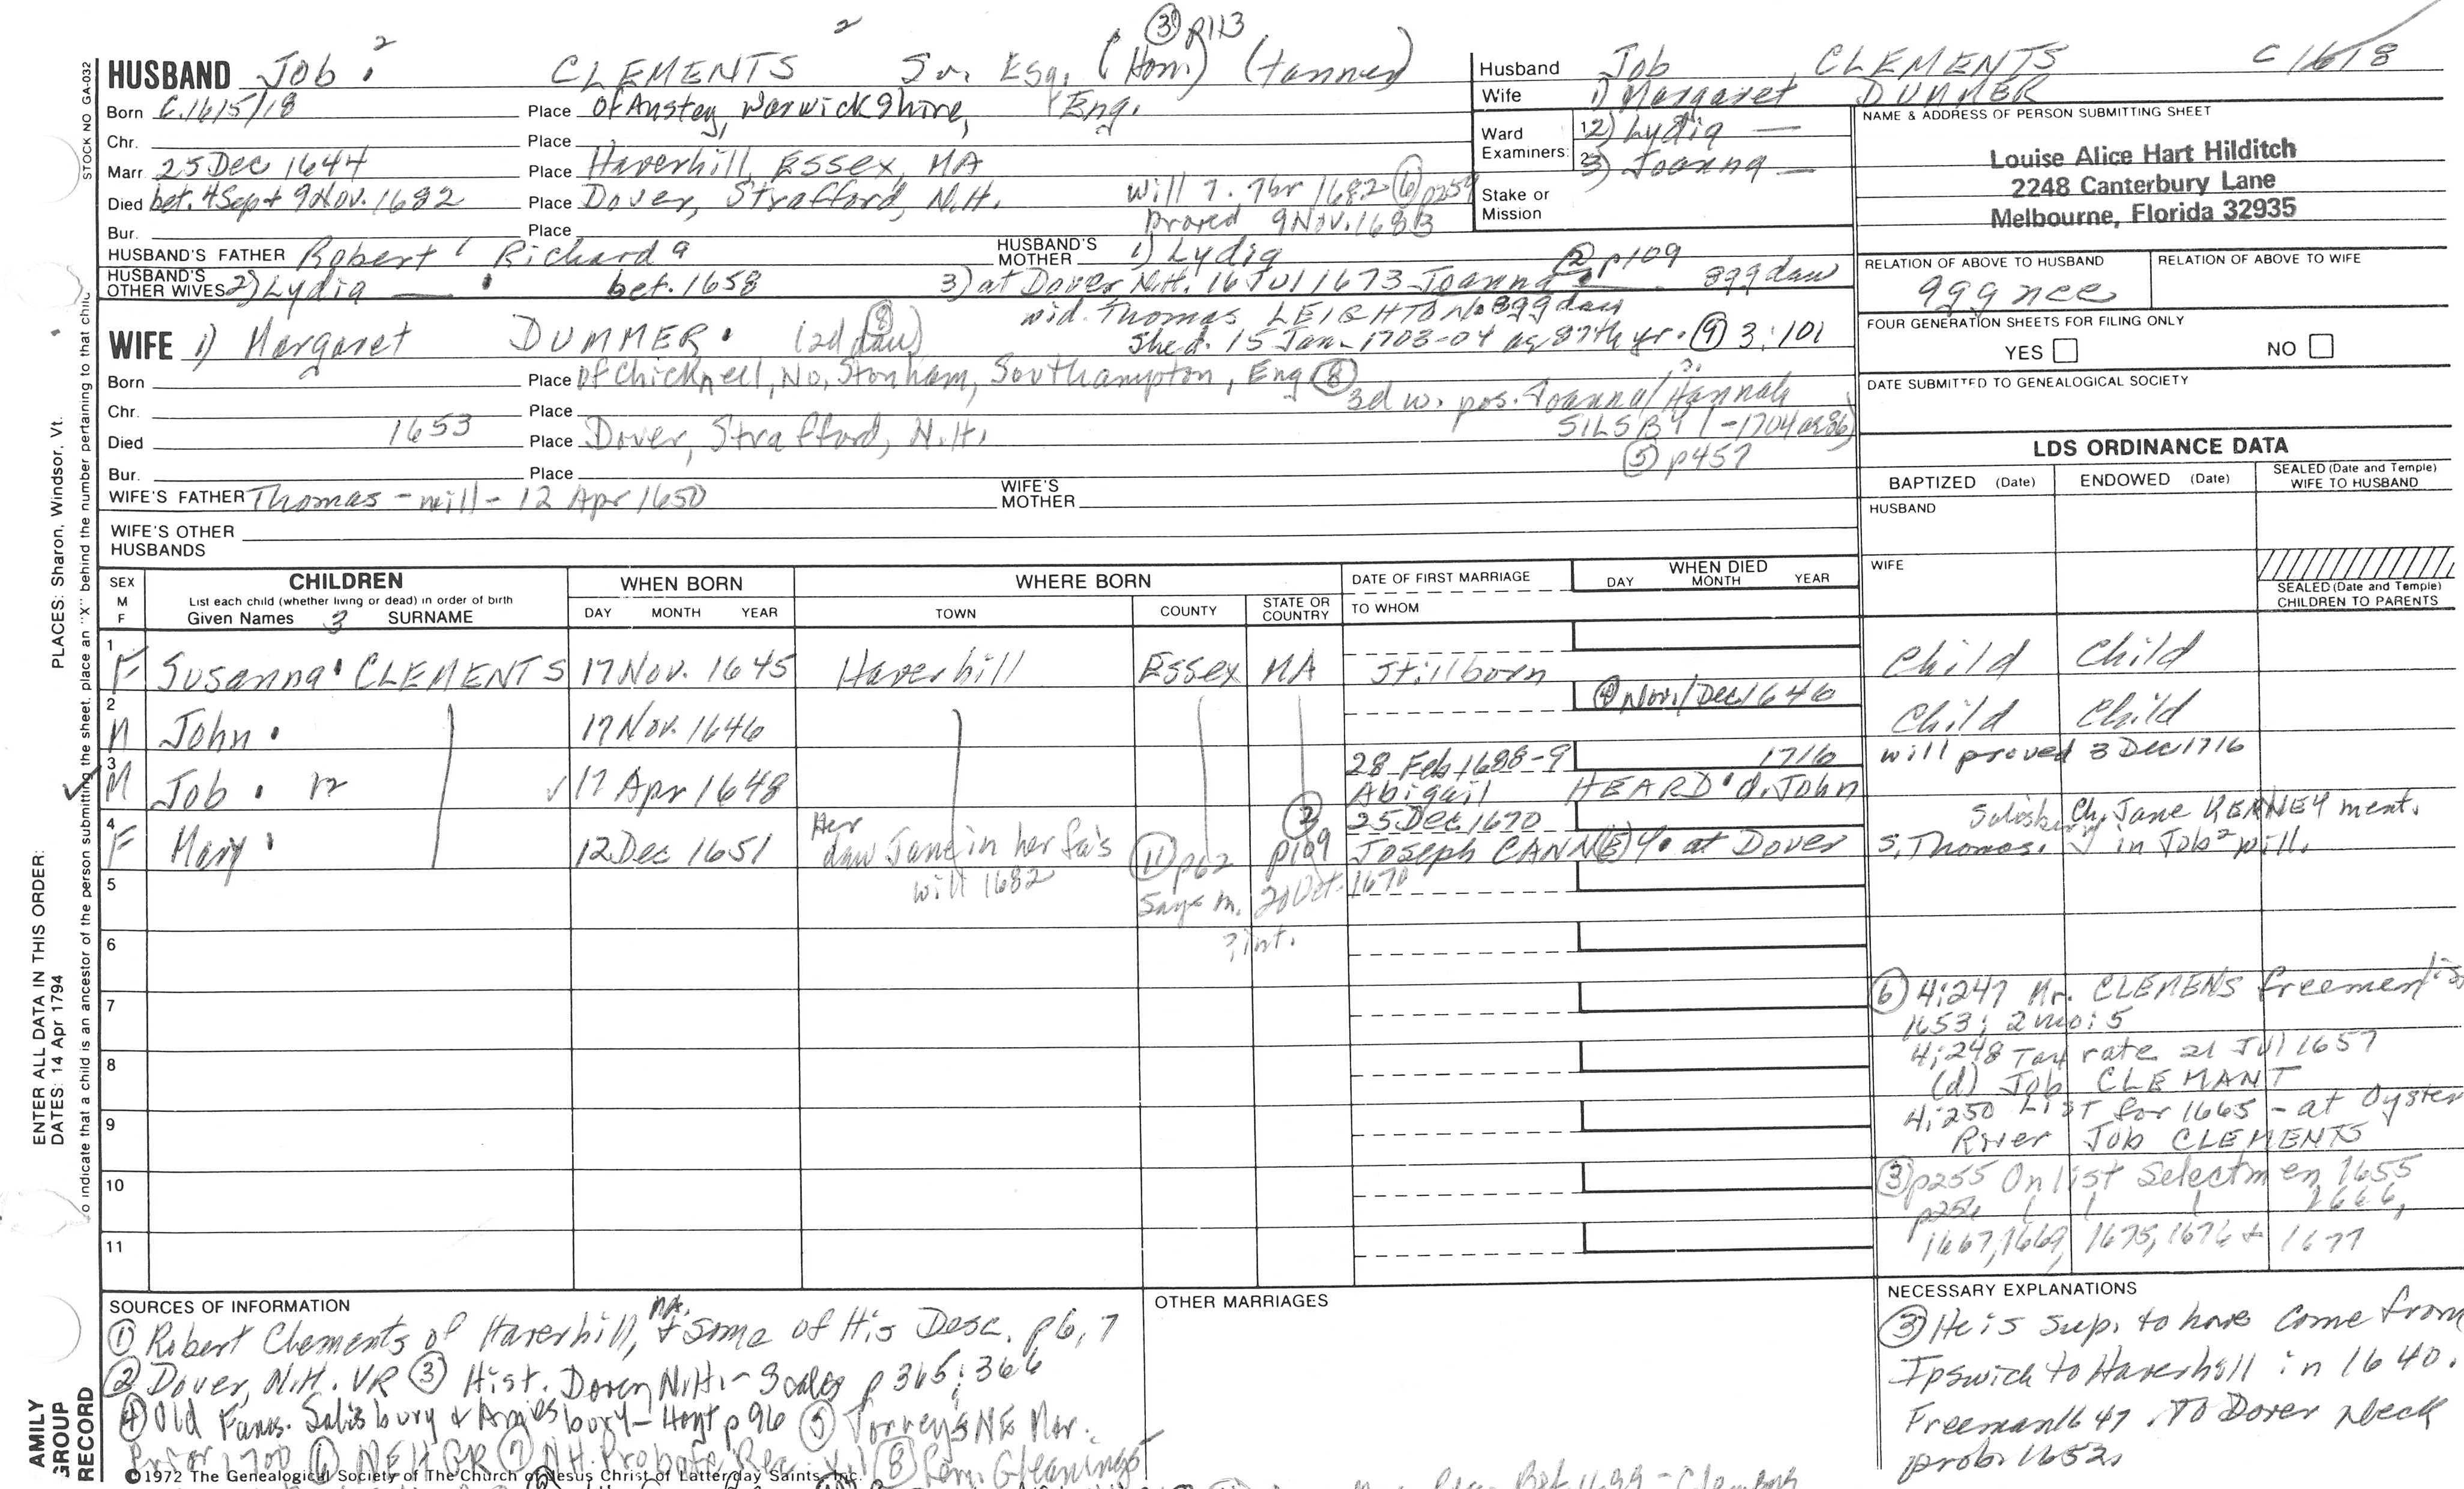 ③ p113
HUSBAND Job ² CLEMENTS ² Sr. Esq. (Hon.) (tanner)
Born c.1615/18 Place of Anstey, Warwickshire, Eng.
Chr. Place
Marr. 25 Dec 1644 Place Haverhill, Essex, MA
Died bet. 4 Sept & 9 Nov. 1682 Place Dover, Strafford, N.H. Will 7. 7br 1682 ⑥ p254
proved 9 Nov. 1683
Bur. Place
HUSBAND'S FATHER Robert ¹ Richard a HUSBAND'S MOTHER 1) Lydia
② p109
HUSBAND'S OTHER WIVES 2) Lydia — bef. 1658 3) at Dover N.H. 16 Jul 1673 Joanna 8gg daw
wid. Thomas LEIGHTON 8gg daw
She d. 15 Jan. 1703-04 ae 87th yr. ⑨ 3:101
WIFE 1) Margaret DUMMER (2d dau) ⑧
Born Place of Chicknell, No. Stonham, Southampton, Eng ⑧
3d w. pos. Joanna/Hannah
SILSBY (-1704 ae 86)
⑤ p457
Chr. Place
Died 1653 Place Dover, Strafford, N.H.
Bur. Place
WIFE'S FATHER Thomas - will - 12 Apr 1650 WIFE'S MOTHER
WIFE'S OTHER HUSBANDS
Husband Job CLEMENTS C 1618
Wife 1) Margaret DUMMER
Ward 1 2) Lydia —
Examiners: 2 3) Joanna —
Stake or Mission
NAME & ADDRESS OF PERSON SUBMITTING SHEET
Louise Alice Hart Hilditch
2248 Canterbury Lane
Melbourne, Florida 32935
RELATION OF ABOVE TO HUSBAND RELATION OF ABOVE TO WIFE
9gg nee
FOUR GENERATION SHEETS FOR FILING ONLY
YES NO
DATE SUBMITTED TO GENEALOGICAL SOCIETY
LDS ORDINANCE DATA
BAPTIZED (Date) ENDOWED (Date) SEALED (Date and Temple) WIFE TO HUSBAND
HUSBAND
WIFE
SEALED (Date and Temple) CHILDREN TO PARENTS
SEX M F
CHILDREN
List each child (whether living or dead) in order of birth
Given Names 3 SURNAME
WHEN BORN
DAY MONTH YEAR
WHERE BORN
TOWN COUNTY STATE OR COUNTRY
DATE OF FIRST MARRIAGE
TO WHOM
WHEN DIED
DAY MONTH YEAR
1 F Susanna CLEMENTS 17 Nov. 1645 Haverhill Essex MA Stillborn Child Child
2 M John 17 Nov. 1646 ④ Nov./Dec 1646 Child Child
3 M Job 17 Apr 1648 28 Feb 1688-9 1716 will proved 3 Dec 1716
Abigail HEARD d. John
4 F Mary 12 Dec 1651 ② p109 25 Dec 1670
Joseph CANN(E)Y at Dover
Her daw Jane in her fa's
will 1682
⑪ p62
says m. 20 Oct. 1670
? int.
Ch. Jane KENNEY ment.
S. Thomas. in Job² will.
5
6
7
8
9
10
11
⑥ 4:247 Mr. CLEMENS freemen
1653; 2 mo: 5
4:248 Tax rate 21 Jul 1657
(d) Job CLEMANT
4:250 List for 1665 - at Oyster
River Job CLEMENTS
③ p255 On list Selectmen 1655
p256 1666,
1667, 1669, 1675, 1676 & 1677
SOURCES OF INFORMATION
① Robert Clements of Haverhill, MA. & Some of His Desc. p6, 7
② Dover, N.H. VR ③ Hist. Dover, N.H. - Scales p 365; 366
④ Old Fams. Salisbury & Amesbury - Hoyt p 96 ⑤ Torrey's NE Mar.
Prior 1700 ⑥ NEHGR ⑦ NH. Probate Rec. ⑧ Gen. Gleanings
©1972 The Genealogical Society of The Church of Jesus Christ of Latter-day Saints, Inc.
OTHER MARRIAGES
NECESSARY EXPLANATIONS
③ He is sup. to have come from
Ipswich to Haverhill in 1640.
Freeman 1647. To Dover Neck
prob. 1652.
STOCK NO GA-032
PLACES: Sharon, Windsor, Vt.
to indicate that a child is an ancestor of the person submitting the sheet, place an "X" behind the number pertaining to that child
ENTER ALL DATA IN THIS ORDER:
DATES: 14 Apr 1794
AMILY
GROUP
RECORD